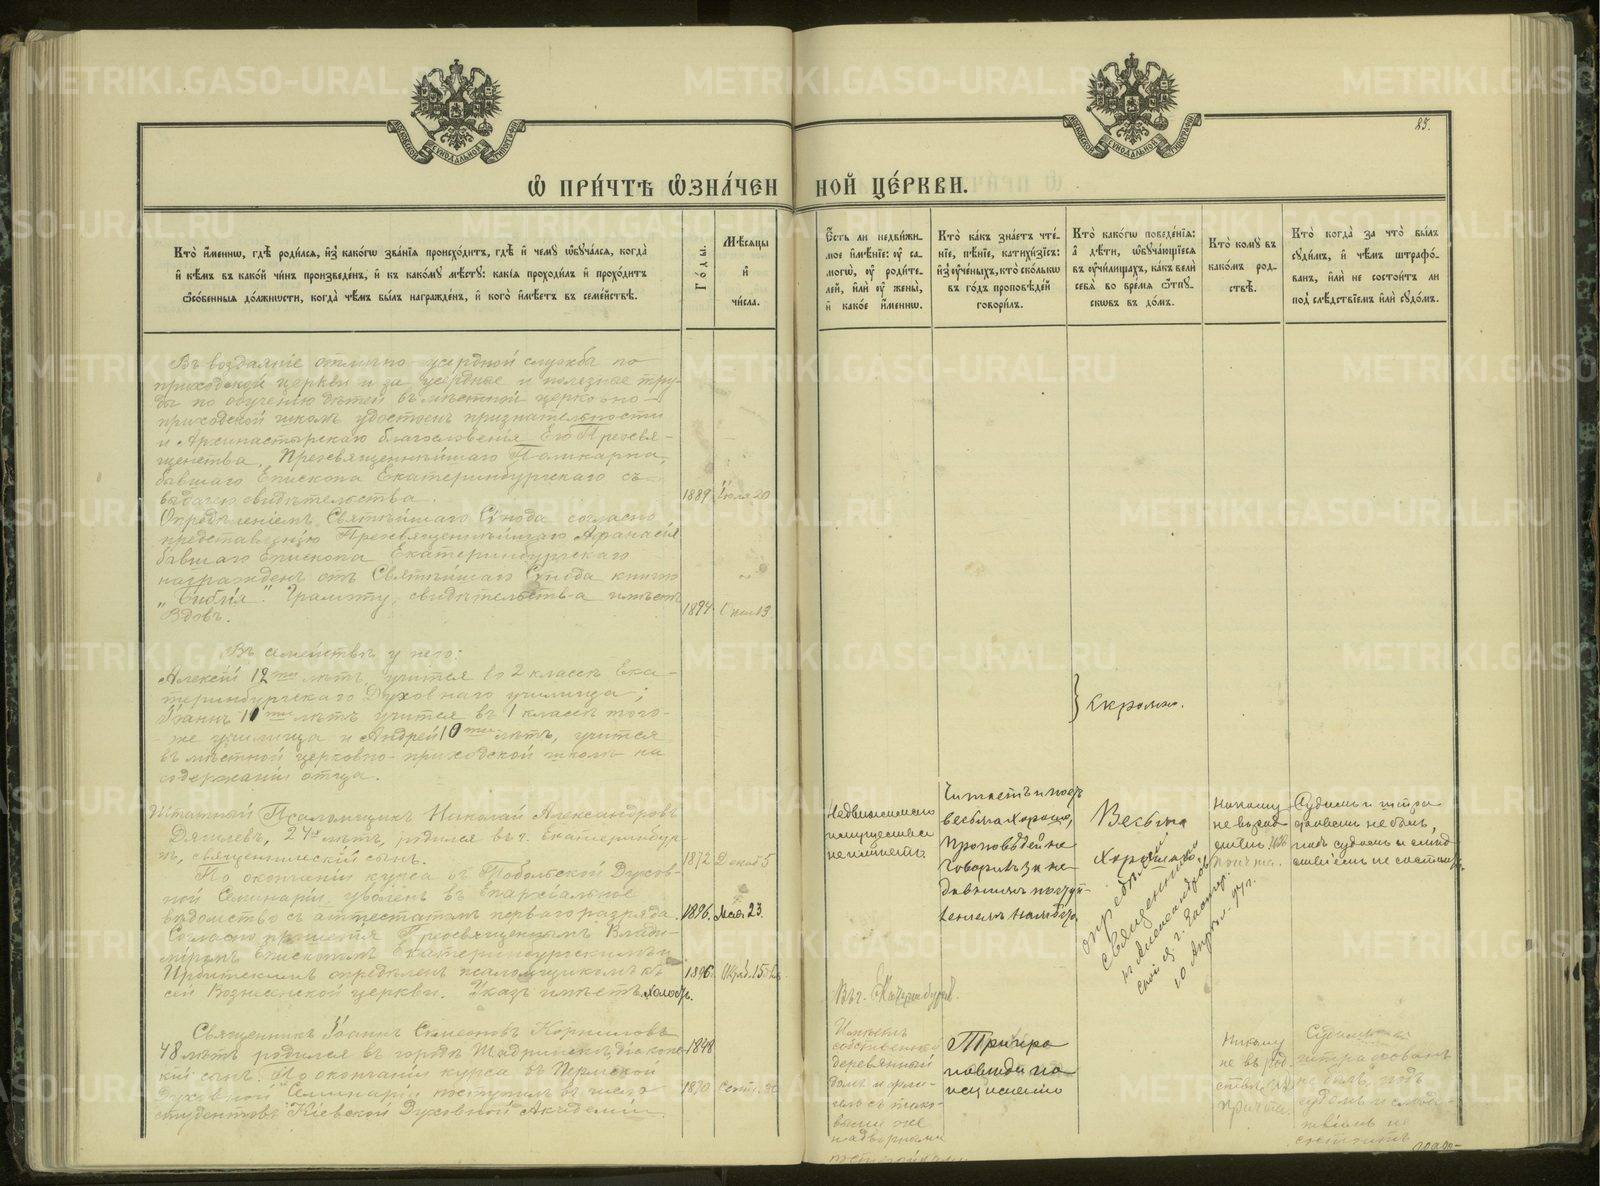 25.
Ѡ ПРИ́ЧТѢ ѠЗНА́ЧЕННОЙ ЦЕ́РКВИ.
Кто̀ и҆́менно, гдѣ̀ роди́лся, и҆з̾ како́гѡ зва́нїѧ происхо́дитъ, гдѣ̀ и҆ чемꙋ̀ ѡ҆бꙋча́лся, когда̀
и҆ кѣ́мъ въ како́й чи́нъ произведе́нъ, и҆ къ како́мꙋ мѣ́стꙋ: какі́ѧ проходи́лъ и҆ прохо́дитъ
ѻ҆со́бенныѧ до́лжности, когда̀ чѣ́мъ бы́лъ награжде́нъ, и҆ кого̀ и҆мѣ́етъ въ семе́йствѣ.
Го́ды.
Мѣ́сѧцы
и҆
чи́сла.
Е҆́сть ли недви́жи-
мое и҆мѣ́нїе: ᲂу҆ са-
могѡ̀, ᲂу҆ роди́те-
лей, и҆лѝ ᲂу҆ жены̀,
и҆ како́е и҆́менно.
Кто̀ ка́къ зна́етъ чте́-
нїе, пѣ́нїе, катихи́зїсъ:
и҆з̾ ᲂу҆че́ныхъ, кто̀ ско́лькѡ
въ го́дъ про́повѣдей
говори́лъ.
Кто̀ како́гѡ поведе́нїѧ:
а҆ дѣ́ти, ѡ҆бꙋча́ющїесѧ
въ ᲂу҆чи́лищахъ, ка́къ велѝ
себѧ̀ во вре́мѧ ѿпꙋ-
сковъ въ до́мъ.
Кто̀ комꙋ̀ въ
како́мъ род-
ствѣ̀.
Кто̀ когда̀ за что̀ бы́лъ
сꙋди́мъ, и҆ чѣ́мъ штрафо́-
ванъ, и҆лѝ не состои́тъ ли
под̾ слѣ́дствїемъ и҆лѝ сꙋдо́мъ.
Въ воздаяніе отлично усердной службы по
приходской церкви и за усердные и полезные тру-
ды по обученію дѣтей въ мѣстной церковно-
приходской школѣ удостоенъ признательности
и Архипастырскаго благословенія Его Преосвя-
щенства, Преосвященнѣйшаго Поликарпа,
бывшаго Епископа Екатеринбургскаго съ
выдачею свидѣтельства. 1889 Іюля 20
Опредѣленіемъ Святѣйшаго Сѵнода согласно
представленію Преосвященнѣйшаго Аѳанасія
бывшаго Епископа Екатеринбургскаго
награжденъ отъ Святѣйшаго Сѵнода книгою
„Библія". Грамоту, свидѣтельства имѣетъ 1894
Вдовъ.
Въ семействѣ у него:
Алексій 12ти лѣтъ, учится во 2 классѣ Ека-
теринбургскаго Духовнаго училища;
Іоаннъ 11ти лѣтъ учится въ 1 классѣ того-
же училища и Андрей 10ти лѣтъ, учится
въ мѣстной церковно-приходской школѣ на
содержаніи отца.
} Скромно.
Штатный Псаломщикъ Николай Александровъ
Дягилевъ, 24хъ лѣтъ, родился въ г. Екатеринбур-
гѣ, священническій сынъ. 1872 Декаб. 5
По окончаніи курса въ Тобольской Духов-
ной Семинаріи, уволенъ въ Епархіальное
вѣдомство съ аттестатомъ перваго разряда. 1896. 23.
Согласно прошенія Преосвященнымъ Влади-
міромъ Епископомъ Екатеринбургскимъ и
Ирбитскимъ опредѣленъ псаломщикомъ къ 1896
сей Вознесенской церкви. Указъ имѣетъ. Холостъ.
Недвижимаго
имущества
не имѣетъ.
Читаетъ и поетъ
весьма хорошо,
Проповѣдей не
говорилъ за не-
давнимъ поступ-
леніемъ
Весьма
хорошаго
опредѣленъ
священникомъ
10 Апрѣл. 97 г.
Никому
не въ род-
ствѣ изъ
причта.
Судимъ и штра-
фованъ не былъ,
подъ судомъ и слѣд-
ствіемъ не состоитъ.
Священникъ Іоаннъ Симеоновъ Корниловъ
48 лѣтъ родился въ городѣ Шадринскѣ, діакон- 1848
скій сынъ. По окончаніи курса въ Пермской
Духовной Семинаріи поступилъ въ число 1870 Сент. 30
студентовъ Кіевской Духовной Академіи.
Въ г. Екатеринбургѣ.
Имѣетъ
собственный
деревянный
домъ и фли-
гель съ тако-
выми же
надворными
постройками
Три
проповѣди по
назначенію
Никому
не въ род-
ствѣ изъ
причта.
Судимъ и
штрафованъ
не былъ, подъ
судомъ и слѣд-
ствіемъ не
состоитъ
METRIKI.GASO-URAL.RU